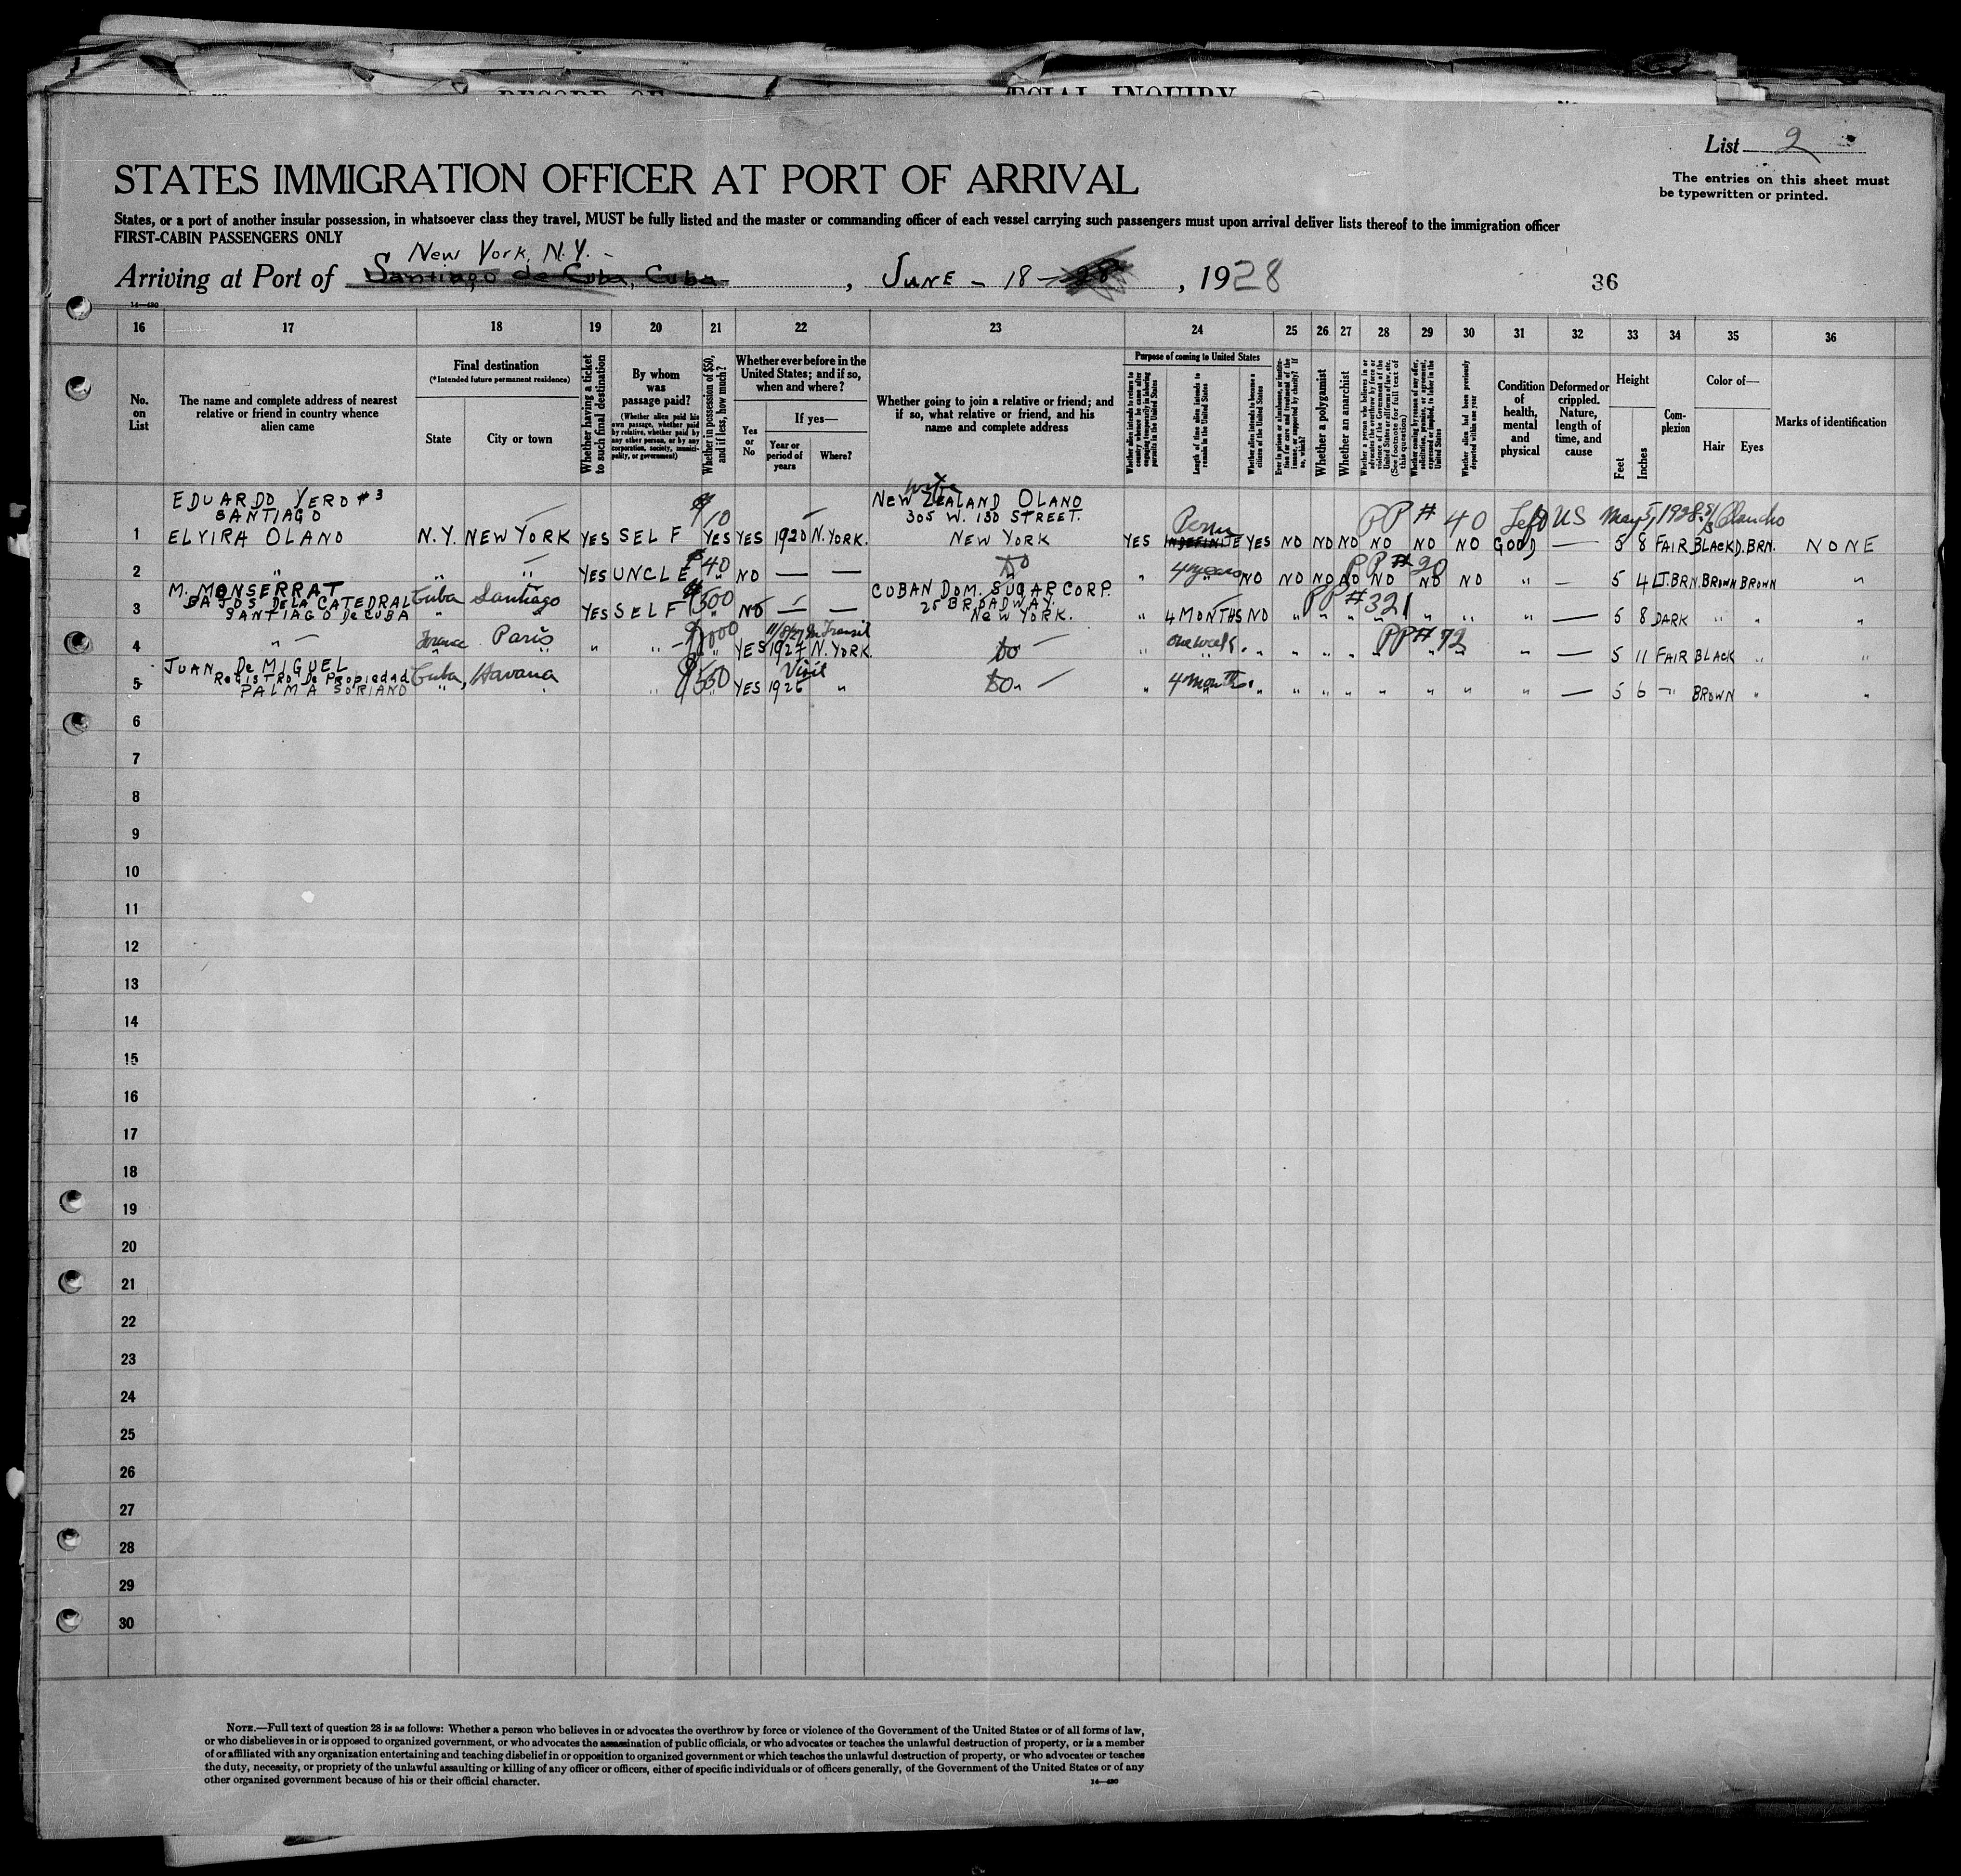 RECORD OF
ECIAL INQUIRY
List 2
STATES IMMIGRATION OFFICER AT PORT OF ARRIVAL
The entries on this sheet must
be typewritten or printed.
States, or a port of another insular possession, in whatsoever class they travel, MUST be fully listed and the master or commanding officer of each vessel carrying such passengers must upon arrival deliver lists thereof to the immigration officer
FIRST-CABIN PASSENGERS ONLY
New York, N.Y. -
Arriving at Port of Santiago de Cuba, Cuba, JUNE - 18 - 28, 1928
36
14-430
16 17 18 19 20 21 22 23 24 25 26 27 28 29 30 31 32 33 34 35 36
No. on List
The name and complete address of nearest relative or friend in country whence alien came
Final destination
(*Intended future permanent residence)
State
City or town
Whether having a ticket to such final destination
By whom was passage paid?
(Whether alien paid his own passage, whether paid by relative, whether paid by any other person, or by any corporation, society, municipality, or government)
Whether in possession of $50, and if less, how much?
Whether ever before in the United States; and if so, when and where?
Yes or No
If yes—
Year or period of years
Where?
Whether going to join a relative or friend; and if so, what relative or friend, and his name and complete address
Purpose of coming to United States
Whether alien intends to return to country whence he came after engaging temporarily in laboring pursuits in the United States
Length of time alien intends to remain in the United States
Whether alien intends to become a citizen of the United States
Ever in prison or almshouse, or institution for care and treatment of the insane, or supported by charity? If so, which?
Whether a polygamist
Whether an anarchist
Whether a person who believes in or advocates the overthrow by force or violence of the Government of the United States or all forms of law, etc. (See footnote for full text of this question)
Whether coming by reason of any offer, solicitation, promise, or agreement, expressed or implied, to labor in the United States
Whether alien had been previously deported within one year
Condition of health, mental and physical
Deformed or crippled. Nature, length of time, and cause
Height
Feet
Inches
Complexion
Color of—
Hair
Eyes
Marks of identification
EDUARDO YERO #3
SANTIAGO
wife
NEW ZEALAND OLANO
305 W. 180 STREET.
$10
Perm
PP # 40 Left US May 5, 1928
1 ELVIRA OLANO N.Y. NEW YORK YES SELF YES YES 1920 N.YORK. NEW YORK YES INDEFINITE YES NO NO NO NO NO NO GOOD — 5 8 FAIR BLACK D.BRN. NONE
PP # 20
2 " " " YES UNCLE $40 " NO — — do " 4 years NO NO NO NO NO NO NO " — 5 4 LT.BRN. BROWN BROWN "
M. MONSERRAT
BAJOS DE LA CATEDRAL
CUBAN DOM. SUGAR CORP.
25 BROADWAY.
PP # 321
3 SANTIAGO De CUBA Cuba Santiago YES SELF $500 " NO — — NEW YORK. " 4 MONTHS NO " " " " " " " — 5 8 DARK " " "
11/8/27 In Transit
PP # 72
4 " France Paris " " $1000 " YES 1927 N.YORK. do " one week " " " " " " " " — 5 11 FAIR BLACK "
JUAN De MIGUEL
Registro De Propiedad
Visit
5 PALMA SORIANO Cuba, Havana " $550 YES 1926 " do " 4 months " " " " " " " " — 5 6 " BROWN " "
6
7
8
9
10
11
12
13
14
15
16
17
18
19
20
21
22
23
24
25
26
27
28
29
30
NOTE.—Full text of question 28 is as follows: Whether a person who believes in or advocates the overthrow by force or violence of the Government of the United States or of all forms of law,
or who disbelieves in or is opposed to organized government, or who advocates the assassination of public officials, or who advocates or teaches the unlawful destruction of property, or is a member
of or affiliated with any organization entertaining and teaching disbelief in or opposition to organized government or which teaches the unlawful destruction of property, or who advocates or teaches
the duty, necessity, or propriety of the unlawful assaulting or killing of any officer or officers, either of specific individuals or of officers generally, of the Government of the United States or of any
other organized government because of his or their official character.
14-430